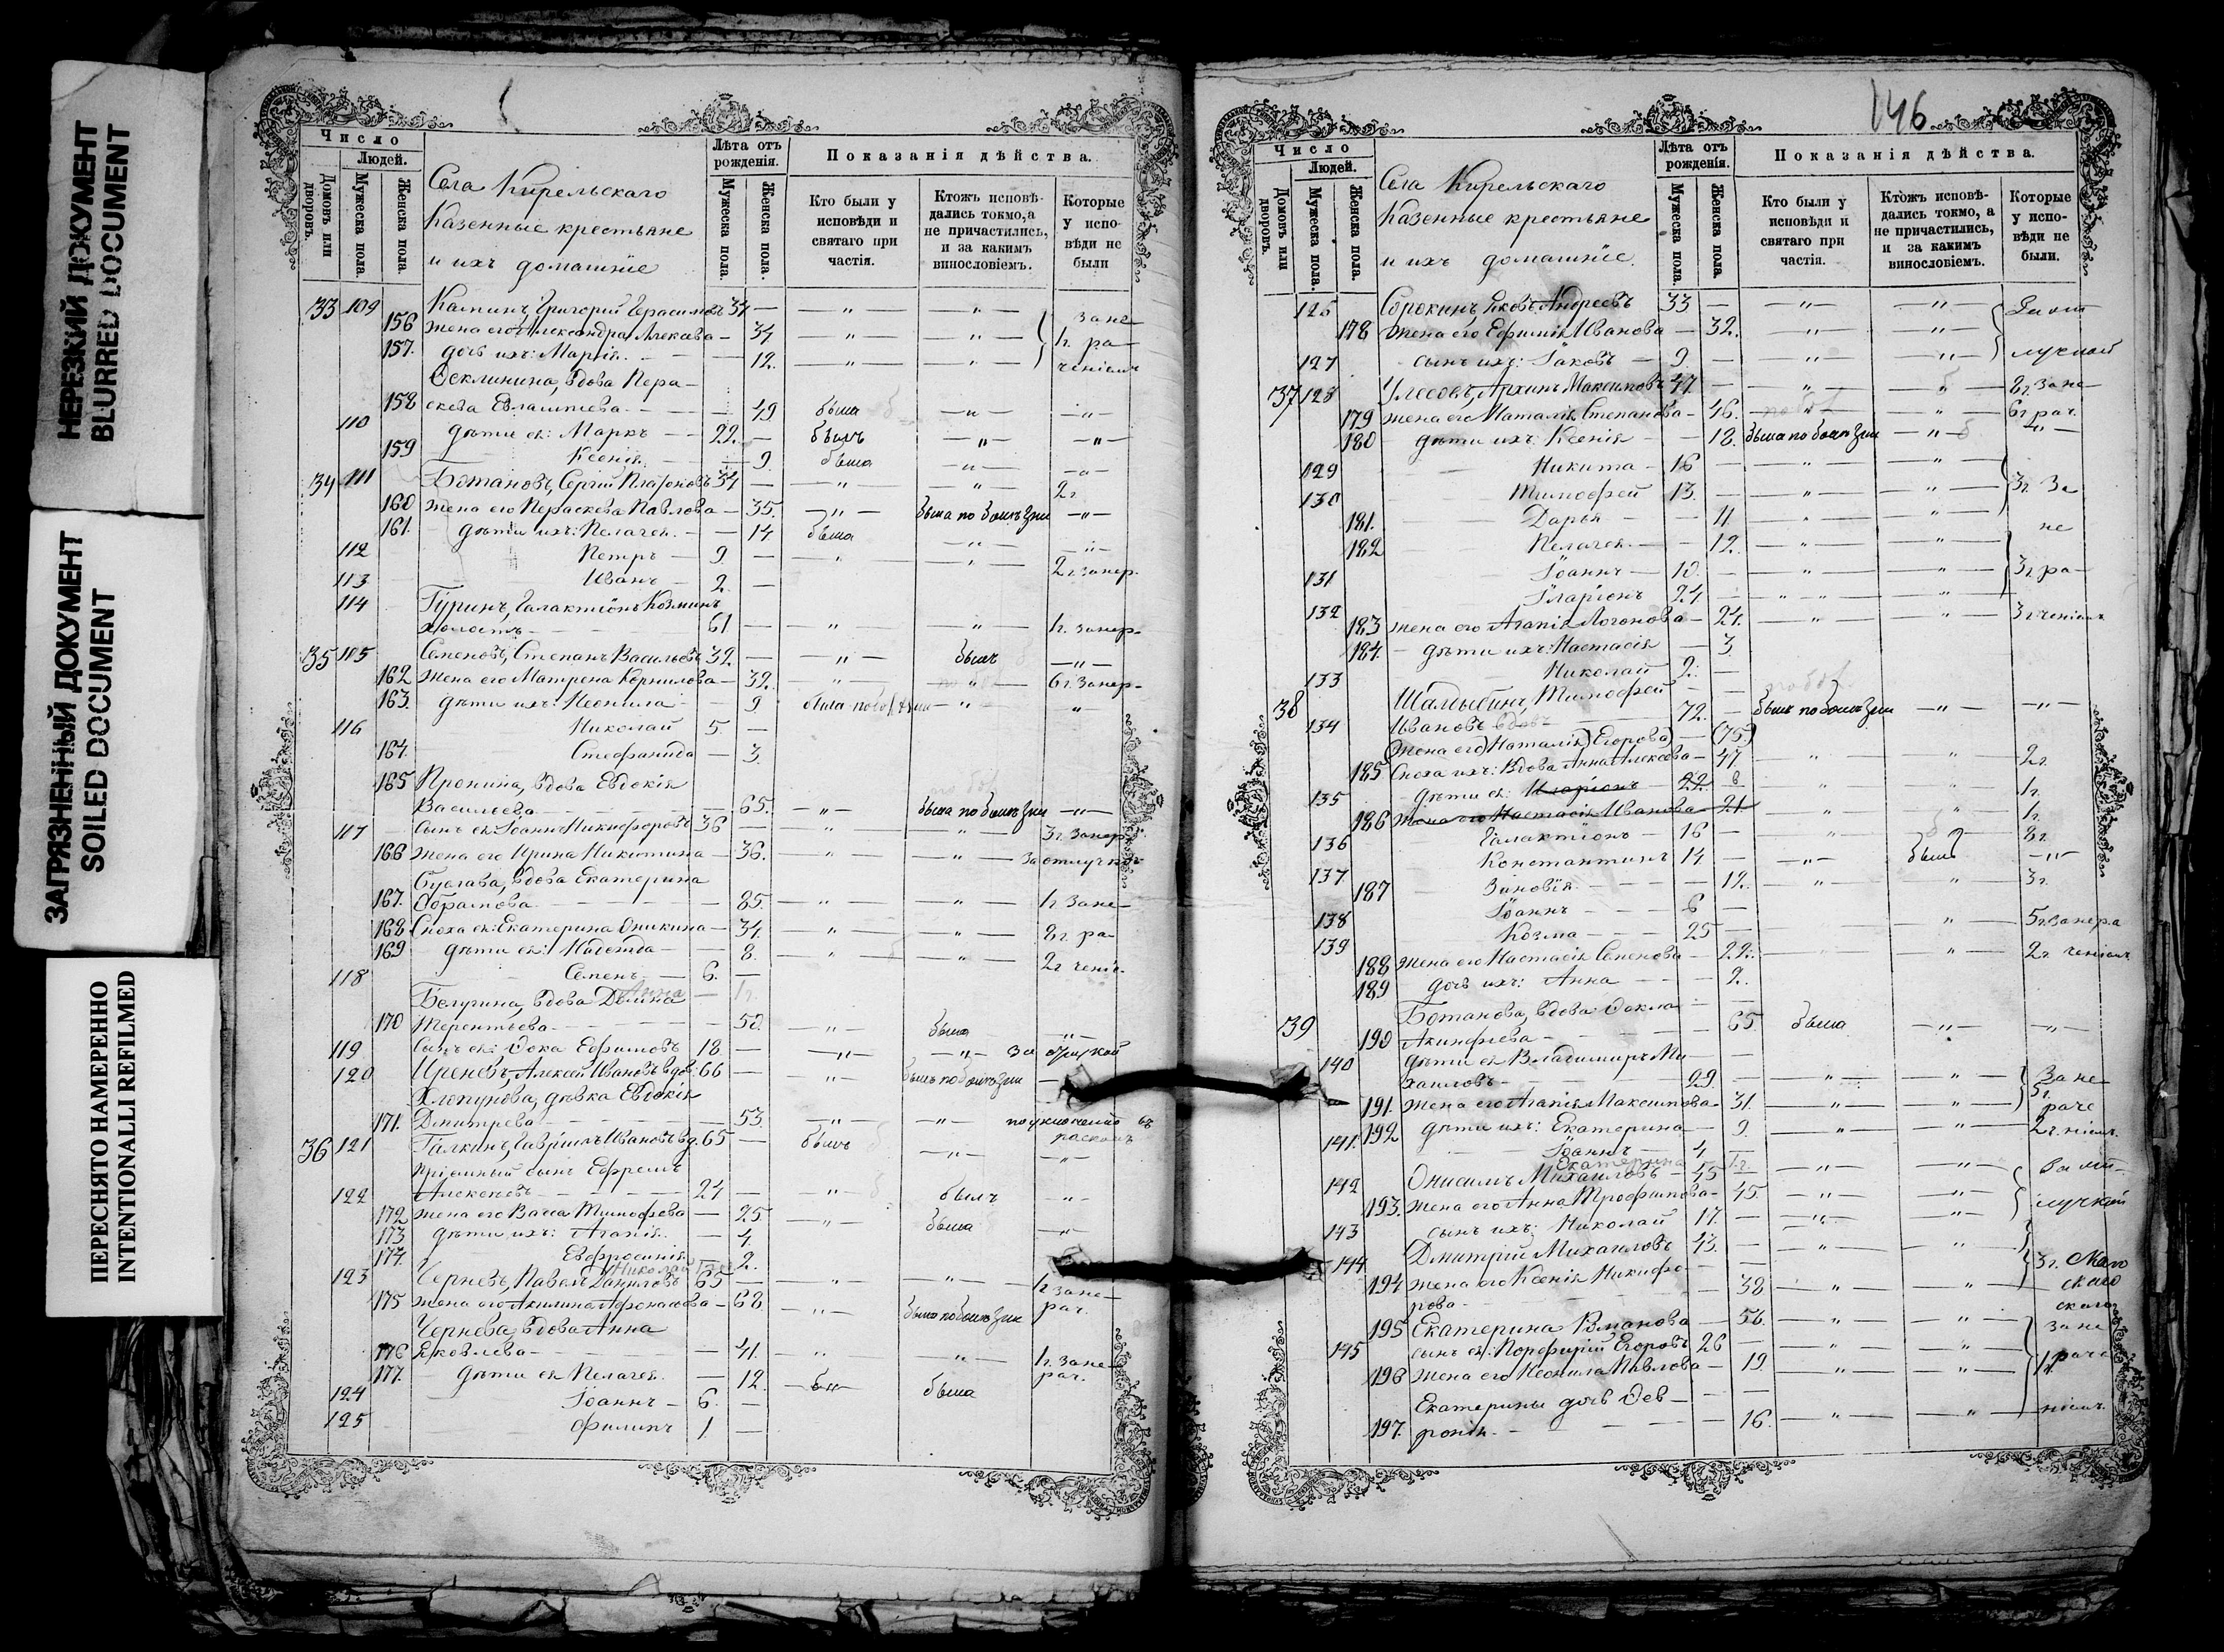 НЕРЕЗКИЙ ДОКУМЕНТ
BLURRED DOCUMENT
ЗАГРЯЗНЕННЫЙ ДОКУМЕНТ
SOILED DOCUMENT
ПЕРЕСНЯТО НАМЕРЕННО
INTENTIONALLI REFILMED
Число
Людей.
Домовъ или дворовъ.
Мужеска пола.
Женска пола.
Села Кирельскаго
Казенные крестьяне
и ихъ домашніе
Лѣта отъ рожденія.
Мужеска пола.
Женска пола.
Показанія дѣйства.
Кто были у исповѣди и святаго при частія.
Ктожъ исповѣ- дались токмо, а не причастились, и за какимъ винословіемъ.
Которые у испо- вѣди не были
33 109 Григорій Герасимовъ 34 — „ — „ — зане
156 жена его Александра Алексѣева — 34 — „ — „ — 1г. ра—
157. дочь ихъ: Марія — 12. — „ — „ — ченіемъ
вдова Пера—
158 скева — 49 была — „ — „ —
110 дѣти ея: Маркъ — 22. — былъ — „ — „ —
159 Ксенія — 9 была — „ — „ —
34 111 Ботановъ, Сергій Платоновъ 34 — „ — „ — 2г
160 жена его Пераскева Павлова — 35. — „ — была по болѣзни — „ —
161. дѣти ихъ: Пелагея — 14 была — „ — „ —
112 Петръ — 9 — „ — „ — 2г. занер.
113 Иванъ — 2 —
114 Гуринъ, Галактіонъ Козминъ
холостъ — 61 — „ — „ — 1г. занер.
35 115 Семеновъ, Степанъ Васильевъ 32 — „ — былъ — „ —
162 жена его Матрена Корнилова — 32. — „ — „ — 6г. занер.
163. дѣти ихъ: Неонила — 9 была по болѣзни — „ — „
116 Николай 5. —
164. Стефанида — 3.
165 Пронина, вдова Евдокія
Васильева — 65. — „ — была по болѣзни — „ —
117 сынъ ея: Іоаннъ Никифоровъ 36 — „ — „ — 3г. занер.
166 жена его Ирина Никитина — 36. — „ — „ — за отлучкой
вдова Екатерина
167. — 85. — „ — „ — 1г зане—
168 Сноха ея: Екатерина Оникина — 34. — „ — „ — 8г. ра—
169 дѣти ея: Надежда — 8. — „ — „ — 2г ченіе.
118 Семенъ — 6. —
Анна — 1г.
Белугина, вдова
170 Терентьева — 50 — „ — была — „ —
119 сынъ ея: Ѳока Ефимовъ 18 — „ — „ — за отлучкой
120 Иреневъ, Алексѣй Ивановъ вдов. 66 — „ — былъ по болѣзни —
Хлопунова, дѣвка Евдокія
171. Дмитрева — 53. — „ — „ — по уклоненію въ расколъ
36 121 Галкинъ, Гавріилъ Ивановъ вд. 65 — былъ — „ — „ —
пріемный сынъ Ефремъ
122 Алексеевъ — 24 — „ — былъ — „ —
172 жена его Васса Тимофеева — 25 — „ — была — „ —
173 дѣти ихъ: Агапія — 4.
174. Евфросинія — 2.
Николай
123 Черневъ, Павелъ Даниловъ 65 — „ — „ — 1г зане—
175 жена его Акилина Афонасьева — 68 — „ — была по болѣзни рач.
Чернева, вдова Анна
176 Яковлева — 41. — „ — „ — 1г. зане—
177. дѣти ея Пелагея — 12. — была рач.
124 Іоаннъ — 6. —
125 Филипъ 1 —
146
Число
Людей.
Домовъ или дворовъ.
Мужеска пола.
Женска пола.
Села Кирельскаго
Казенные крестьяне
и ихъ домашніе.
Лѣта отъ рожденія.
Мужеска пола.
Женска пола.
Показанія дѣйства.
Кто были у исповѣди и святаго при частія.
Ктожъ исповѣ- дались токмо, а не причастились, и за какимъ винословіемъ.
Которые у испо- вѣди не были.
126 Сорокинъ, Яковъ Андреевъ 33 — „ — „ — За от
178 жена его Ефимія Иванова — 32. — „ — „ —
127 сынъ ихъ: Іаковъ — 9 — „ — „ — лучкой
37 128 Архипъ Максимовъ 47 — „ — 8г. зане—
179 жена его Наталія Степанова — 46. — „ — 6г рач.
180 дѣти ихъ: Ксенія — 18. была по болѣзни — „ — „ —
129 Никита — 16 — „ — „ —
130 Тимофей 13. — „ — „ — 3г. За
181. Дарья — 11 — „ — „ — не
182 Пелагея — 12. — „ — „ —
131 Іоаннъ — 10 — „ — „ — 3г. ра—
132 Іларіонъ 24 — „ — „ —
183 жена его Агапія — 24. — „ — „ — 3г ченіемъ
184. дѣти ихъ: Настасія — 3
133 Николай — 2. —
38 Шалыбинъ, Тимофей
134 Ивановъ вдовъ 72. — былъ по болѣзни — „ — „ —
(Жена его) Наталія) Егорова) — (75)
185 Сноха ихъ: вдова Анна Алексѣева — 47 — „ — „ — 2г.
135 дѣти ея: Иларіонъ — 22. в — „ — „ — 1г.
186 жена его Настасія Иванова — 21. — „ — 1г.
136 Галактіонъ — 16 — „ — 8г.
137 Константинъ 14 — „ — былъ — „ —
187 Зиновія — 12. — „ — „ — 3г.
138 Іоаннъ — 6 —
139 Козма — 25 — „ — 5г. занера
188 жена его Настасія Семенова — 22. — „ — 2г ченіемъ
189 дочь ихъ: Анна — 2.
39 Ботанова, вдова Ѳекла
190 Акинфиева — 65 была — „ — „ —
140 дѣти ея Владимиръ Ми—
хаиловъ — 29. — „ — „ — Зане—
191. жена его Агапія Максимова — 31. — „ — „ — 5г. раче
192 дѣти ихъ: Екатерина — 9. — „ — „ — 2г. ніемъ
141. Іоаннъ — 4 —
Екатерина 1г.
142 Онисимъ Михаиловъ — 45 — „ — „ — За от—
193. жена его Анна Трофимова — 45. — „ — „ — лучкой
143 сынъ ихъ: Николай 17. — „ — „ —
144 Дмитрій Михаиловъ 43. — „ — „ — 3г.
194 жена его Ксенія Никифо—
рова — 38 — „ — „ —
195 Екатерина — 56. — „ — „ — зане
145 сынъ ея: Порфирій Егоровъ 26 — „ — „ — раче
196 жена его Неонила Павлова — 19. — „ — „ — 1г.
Екатерины дочь Фев—
197. ронія — 16. — „ — „ — ніемъ